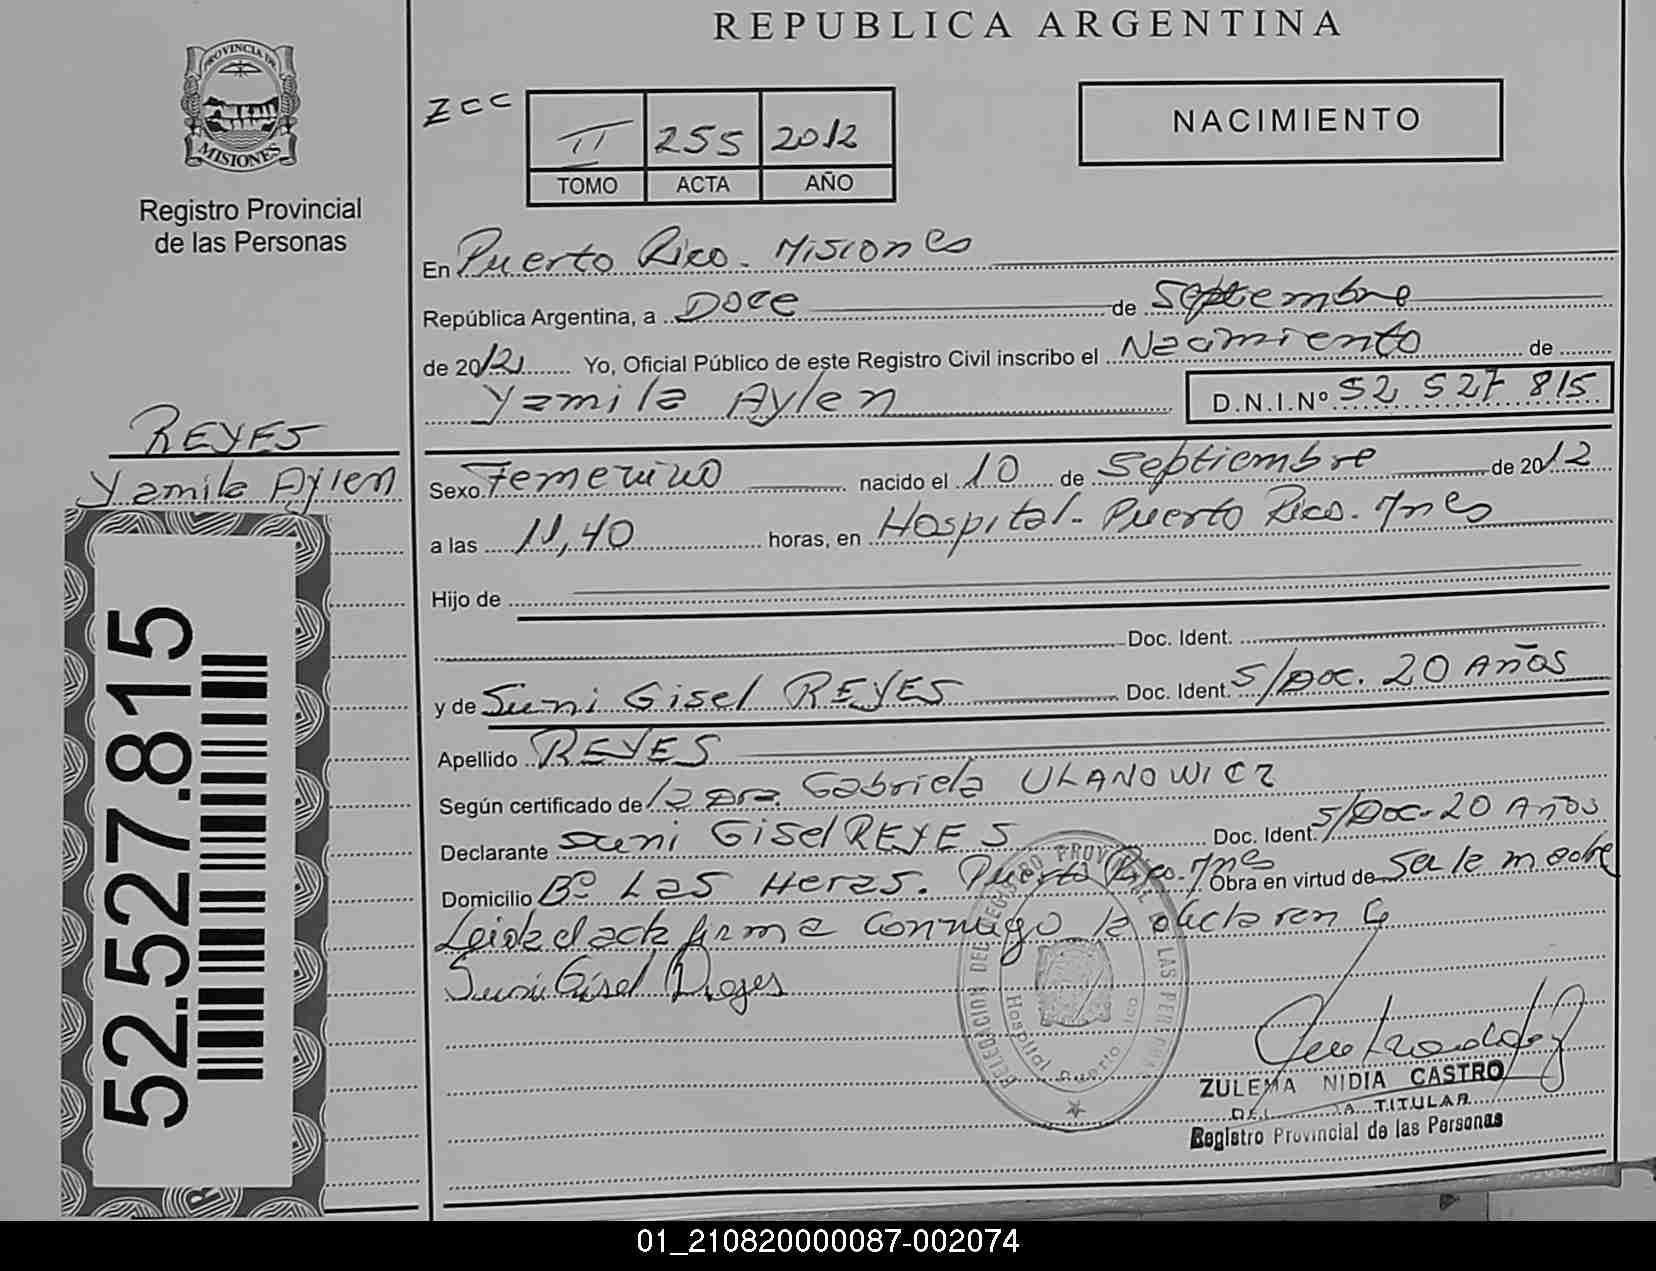 REPUBLICA ARGENTINA
PROVINCIA DE
MISIONES
Registro Provincial
de las Personas
zcc
II 255 2012
TOMO ACTA AÑO
NACIMIENTO
En Puerto Rico. Misiones
República Argentina, a Doce de Septiembre
de 2012 Yo, Oficial Público de este Registro Civil inscribo el Nacimiento de
Yamila Aylen D.N.I.Nº 52 527 815
REYES
Yamila Aylen
Sexo Femenino nacido el 10 de Septiembre de 2012
a las 11,40 horas, en Hospital - Puerto Rico. Mnes
Hijo de
Doc. Ident.
y de Suni Gisel REYES Doc. Ident. S/Doc. 20 Años
Apellido REYES
Según certificado de la Dra. Gabriela ULANOWICZ
Declarante Suni Gisel REYES Doc. Ident. S/Doc. 20 Años
Domicilio Bº Las Heras. Puerto Rico. Mnes Obra en virtud de Ser la madre
Leida el acta firma conmigo la declarente
Suni Gisel Reyes
52.527.815
Hospital Puerto
ZULEMA NIDIA CASTRO
TITULAR
Registro Provincial de las Personas
01_210820000087-002074